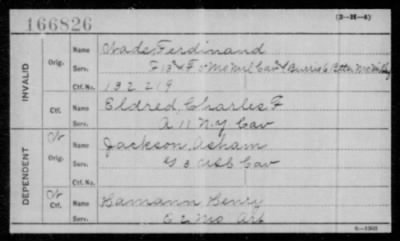 166826
(3-H-4)
INVALID
Orig.
Name Wade, Ferdinand
Serv. F 13 & F Mo Mil Cav & Burris Batta Mo Mil
Ctf. No. 132219
Ctf.
Name Eldred, Charles F
Serv. A 11 N.Y. Cav
DEPENDENT
W
Orig.
Name Jackson, Asham
Serv. G 3 USC Cav
Ctf. No.
W
Ctf.
Name Hamann Henry
Serv. C 2 Mo Art